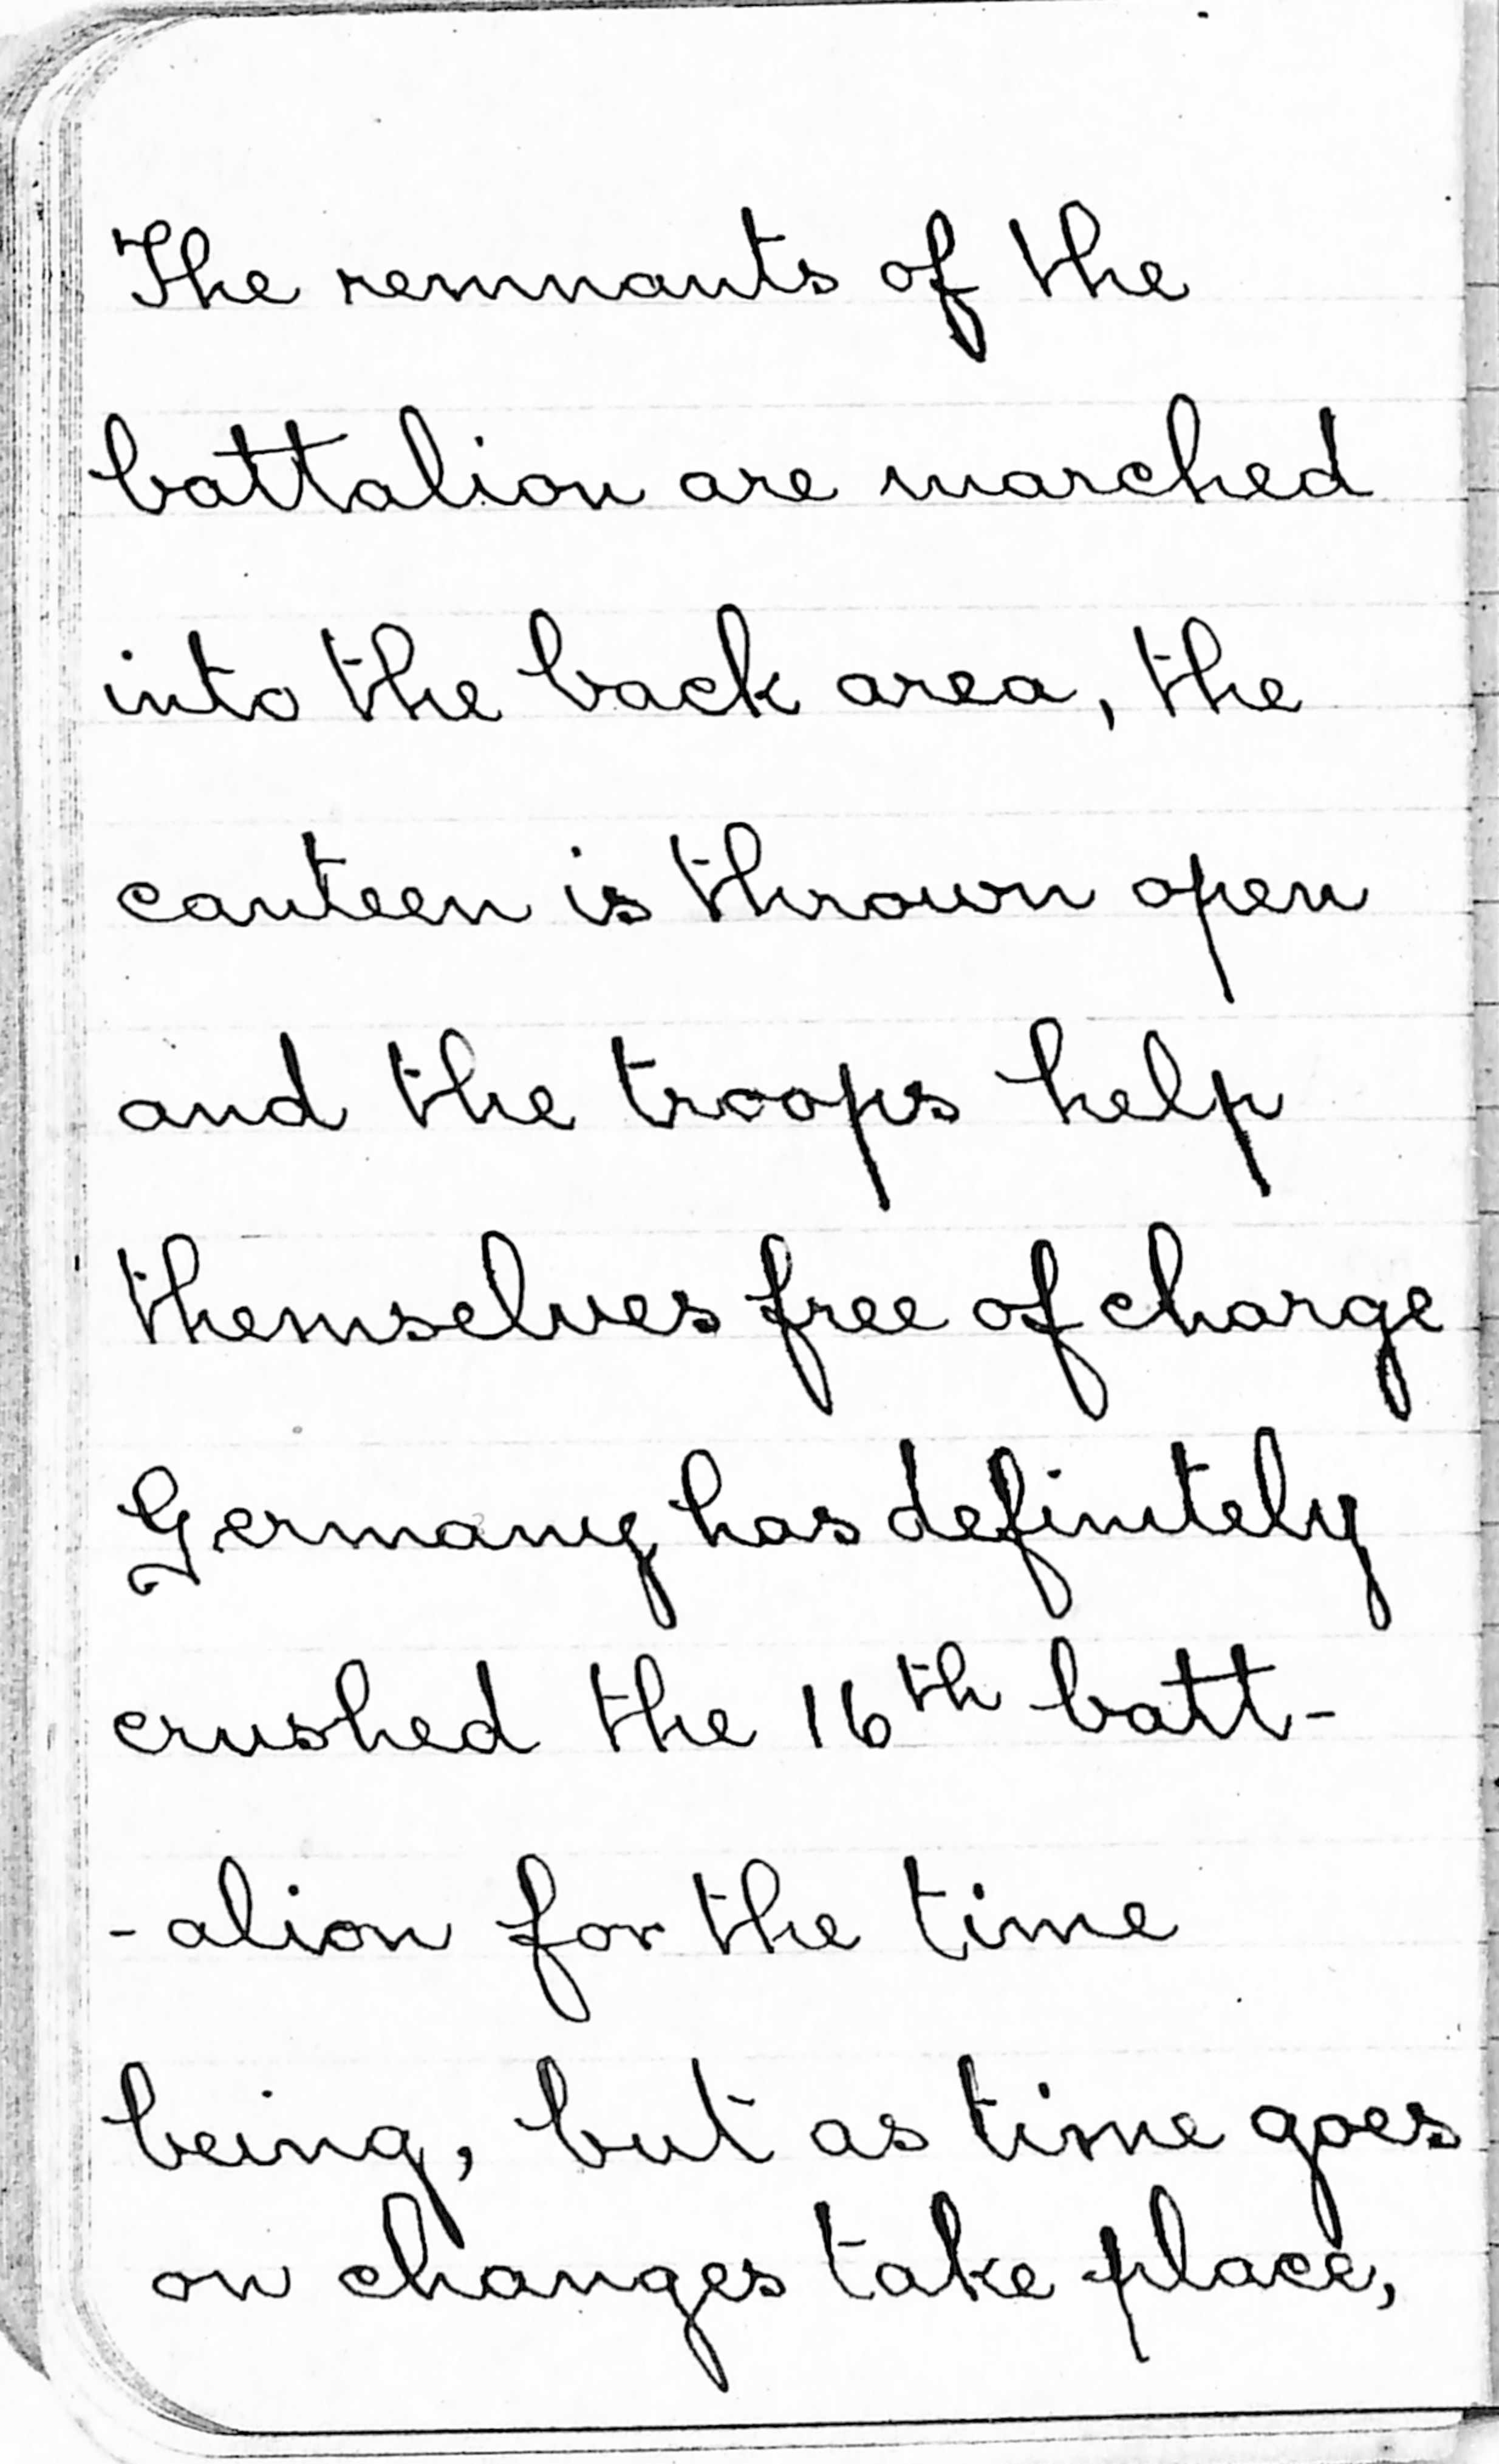 The remnants of the
battalion are marched
into the back area, the
canteen is thrown open
and the troops help
themselves free of charge
Germany has definitely
crushed the 16th batt-
-alion for the time
being, but as time goes
on changes take place,